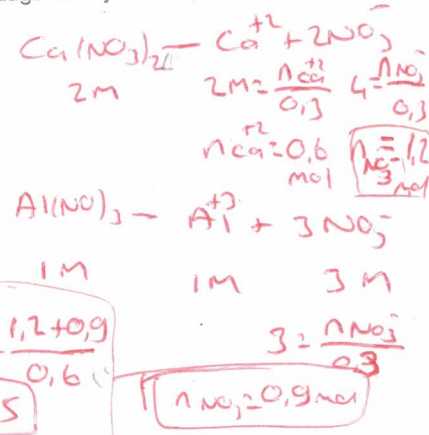 Ca(NO3)2 — Ca+2 + 2NO3-
2M 2M = nCa+2/0,3 4 = nNO3-/0,3
nCa+2 = 0,6 mol nNO3- = 1,2 mol
Al(NO)3 — Al+3 + 3NO3-
1M 1M 3M
1,2+0,9/0,6 3 = nNO3-/0,3
nNO3 = 0,9 mol